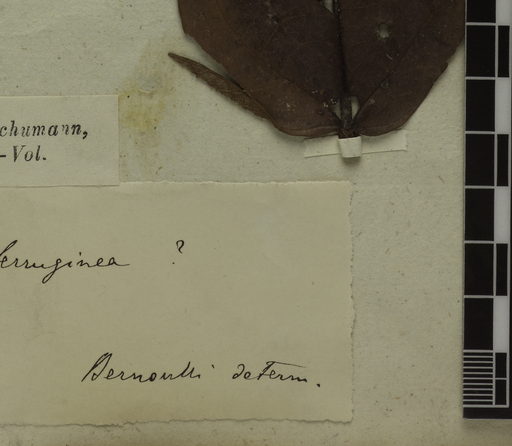 chumann,
-Vol.
ferruginea ?
Bernoulli determ.